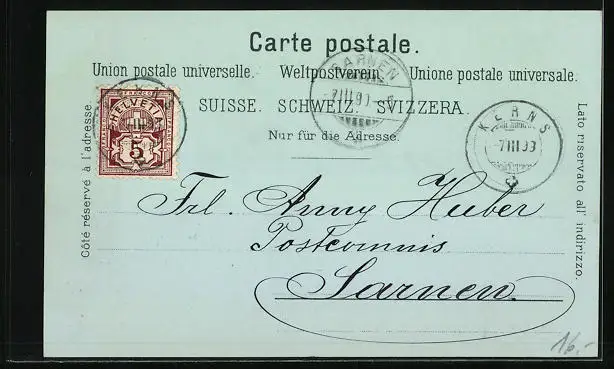 Carte postale.
Union postale universelle. Weltpostverein. Unione postale universale.
SUISSE. SCHWEIZ. SVIZZERA.
Nur für die Adresse.
Côté réservé à l'adresse.
Lato riservato all' indirizzo.
KERNS
HELVETIA
5
SARNEN
KERNS
-7III93
Frl. Anny Huber
Postcommis
Sarnen.
16.-